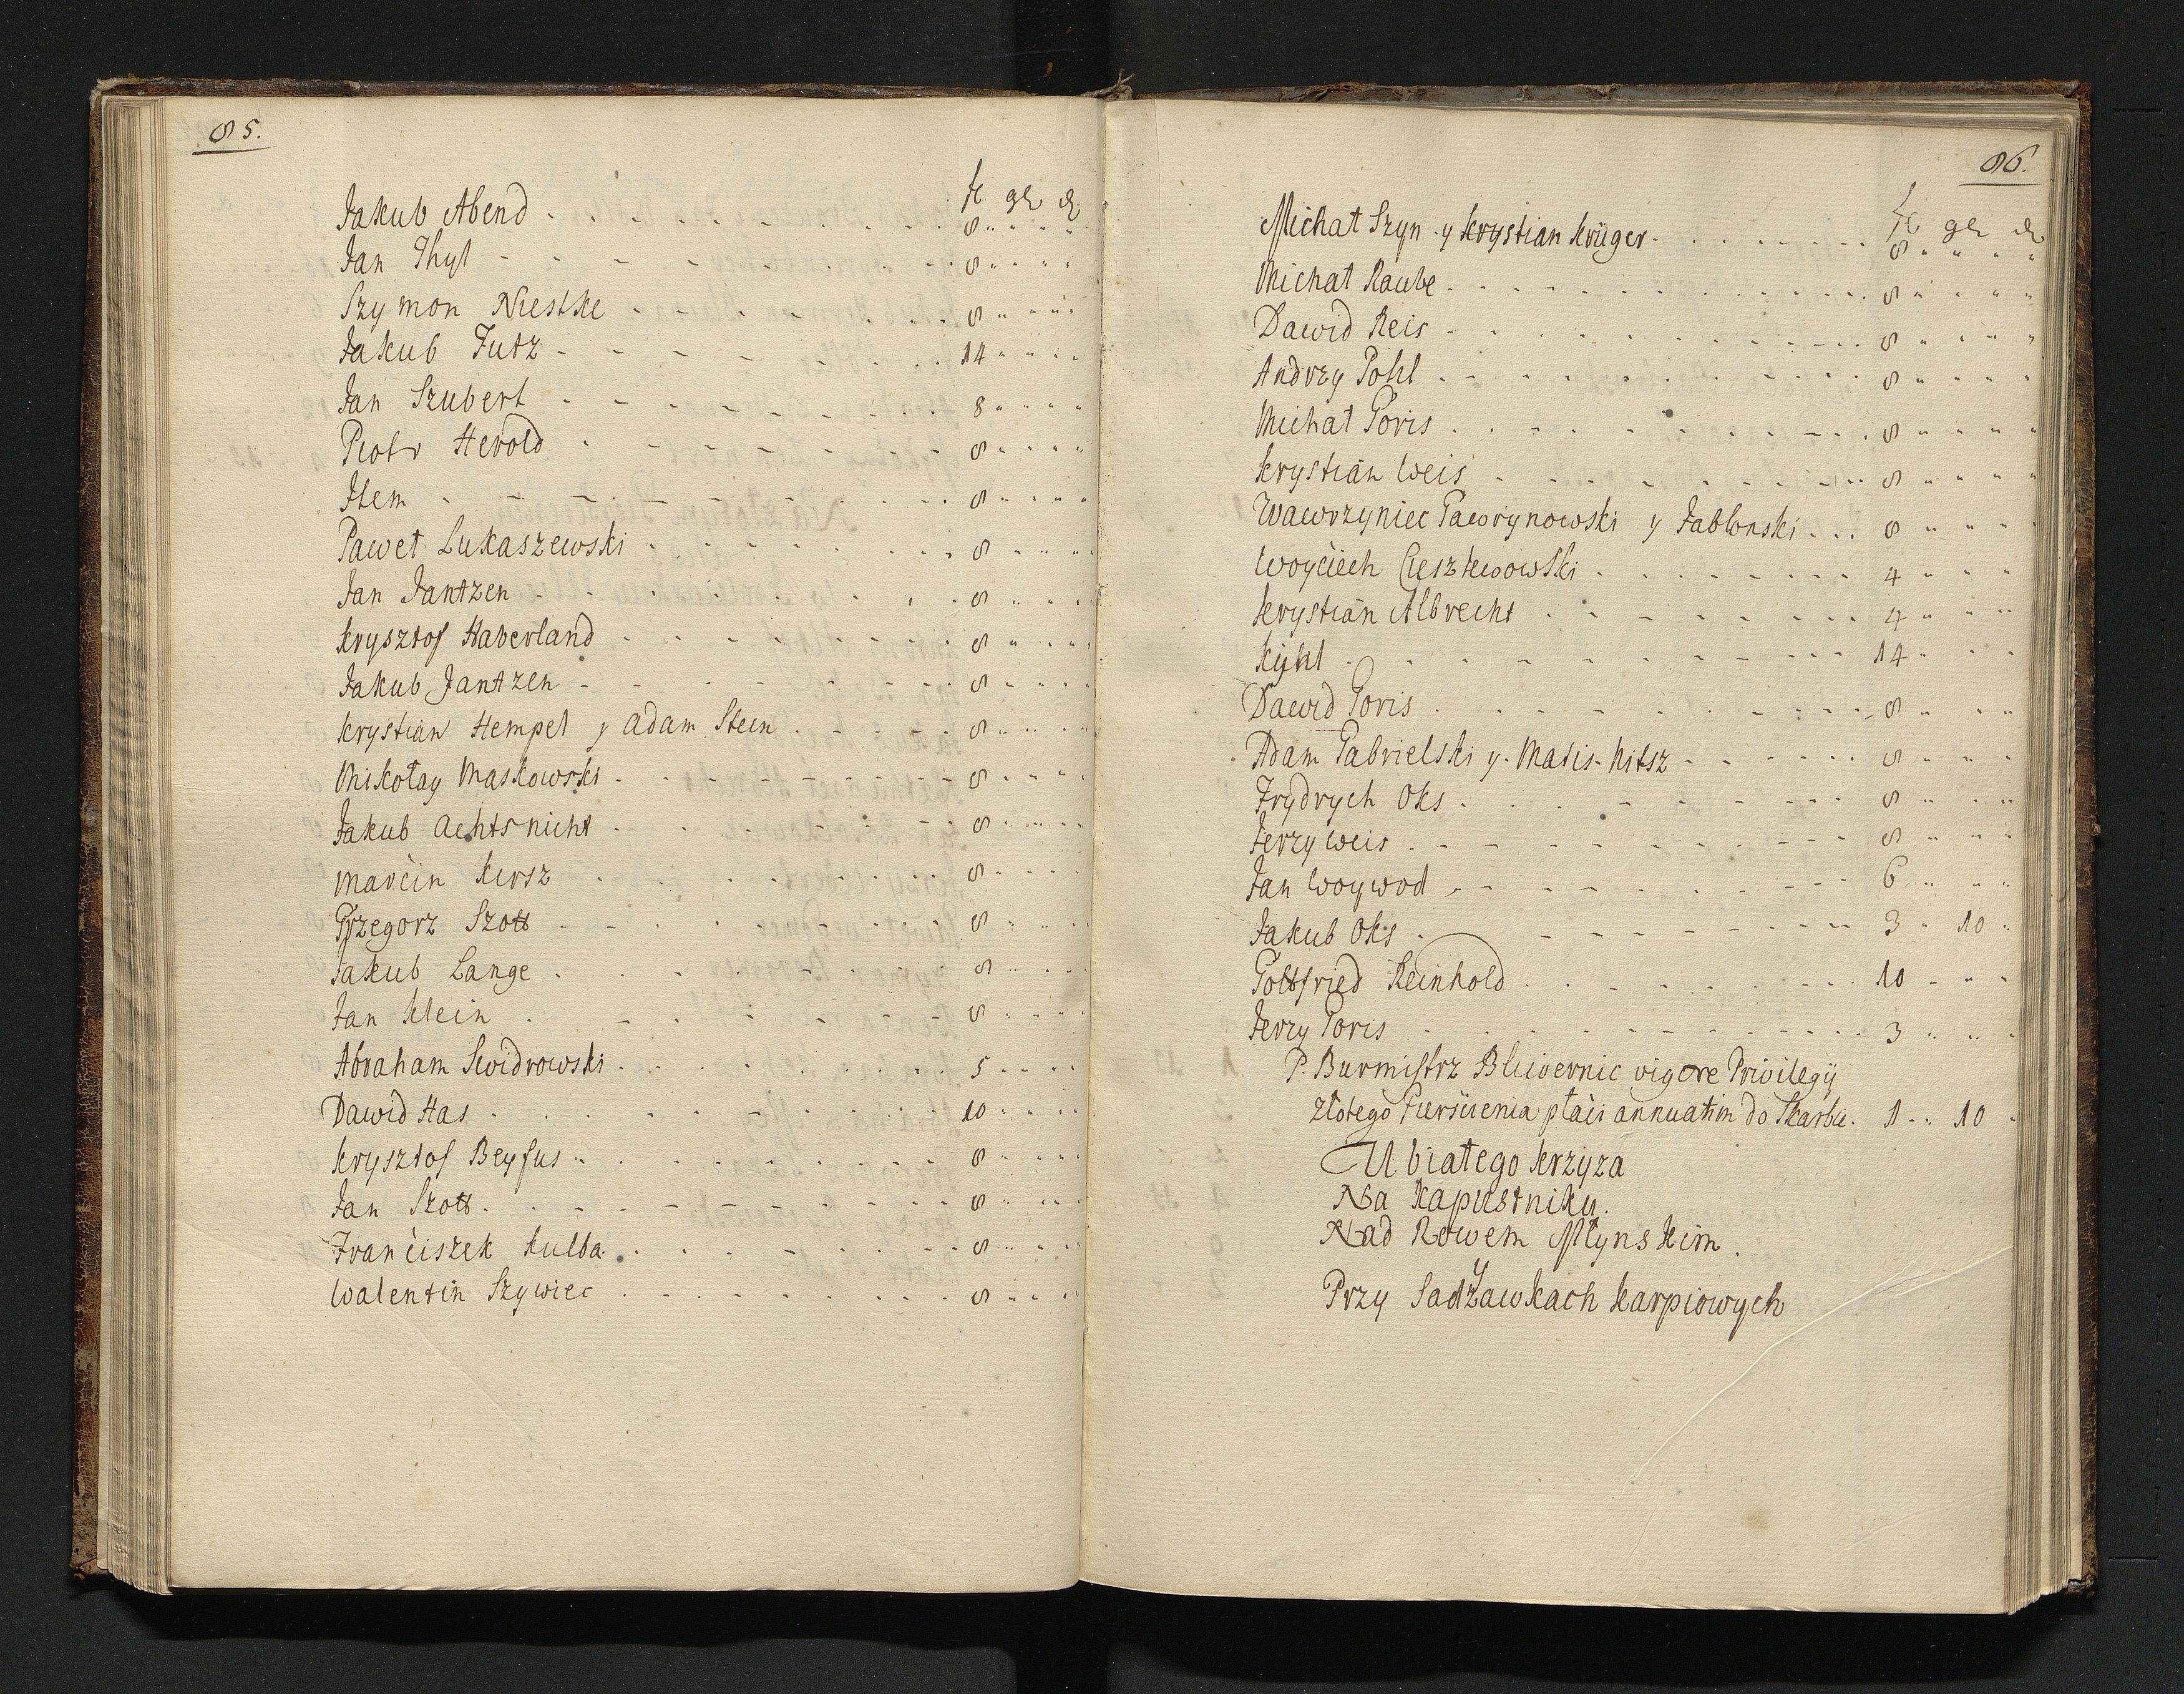 85.
fl gl d
Jakub Abend 8
Jan Thyl 8
Szymon Nieske 8
Jakub Jutz 14
Jan Szubert 8
Piotr Herold 8
Item 8
Paweł Lukaszewski 8
Jan Jantzen 8
Krysztof Haberland 8
Jakub Jantzen 8
Krystian Hempel y Adam Stein 8
Mikołay Maskowski 8
Jakub Achtsnicht 8
Marćin Kirsz 8
Grzegorz Szott 8
Jakub Lange 8
Jan Klein 8
Abraham Swidrowski 5
Dawid Has 10
Krysztof Beyfus 8
Jan Szott 8
Franćiszek Kulba 8
Walentin Szywiec 8
86.
fl gl d
Michał Szyn y Krystian Krüger 8
Michał Raube 8
Dawid Reis 8
Andrzy Pohl 8
Michał Goris 8
Krystian Weis 8
Wawrzyniec Gawrynowski y Jablonski 8
Woyćiech 4
Krystian Albrecht 4
Kÿhl 14
Dawid Goris 8
Adam Gabrielski y Matis Nitsz 8
Frydrych Oks 8
Jerzy Weis 8
Jan Woywod 6
Jakub Oks 3 10
Gottfried Reinhold 10
Jerzy Goris 3
P. Burmistrz Bliwernic vigore Privilegÿ
złotego Pierśćienia płaći annuatim do Skarbu 1 10
U białego Krzyza
Na Kapustniku.
Nad Rowem Młynskim.
y
Przy Sadżawkach Karpiowych